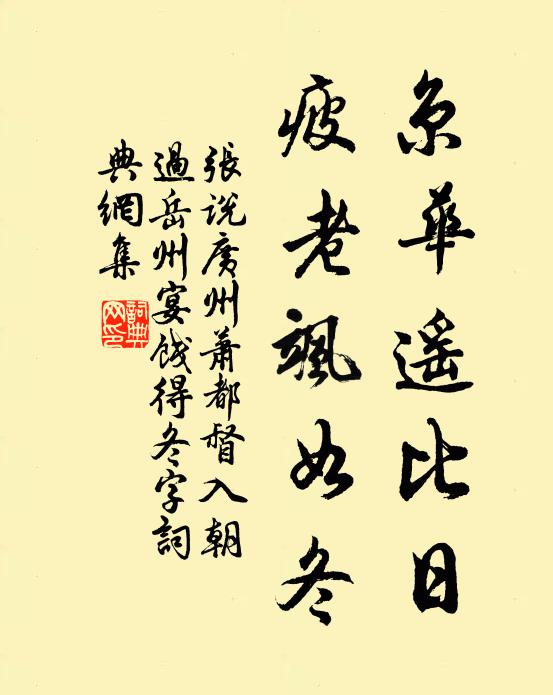 京華遥比日
疲老颯如冬
張說廣州蕭都督入朝
過岳州宴餞得冬字詞
典網集
詞典網印